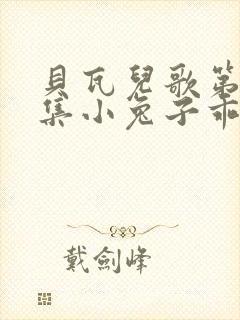 貝瓦兒歌第
集小兔子乖
戴劍峰